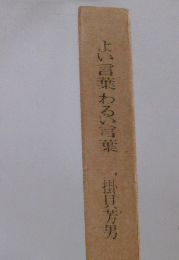 よい言葉わるい言葉
掛貝芳男